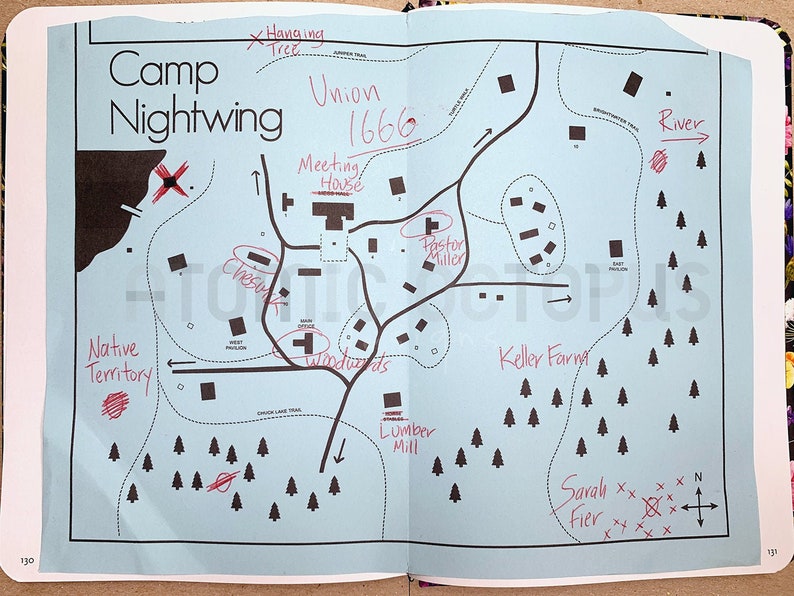 x Hanging
Tree
JUNIPER TRAIL
Camp
Nightwing
Union
1666
TURTLE WALK
BRIGHTWATER TRAIL
River
10
Meeting
House
MESS HALL
2
Pastor
Miller
4
Chesurk
6
EAST
PAVILION
ATOMIC OCTOPUS
10
MAIN
OFFICE
WEST
PAVILION
Woodwards
Native
Territory
Keller Farm
CHUCK LAKE TRAIL
HORSE
STABLES
Lumber
Mill
Sarah
Fier
N
130
131